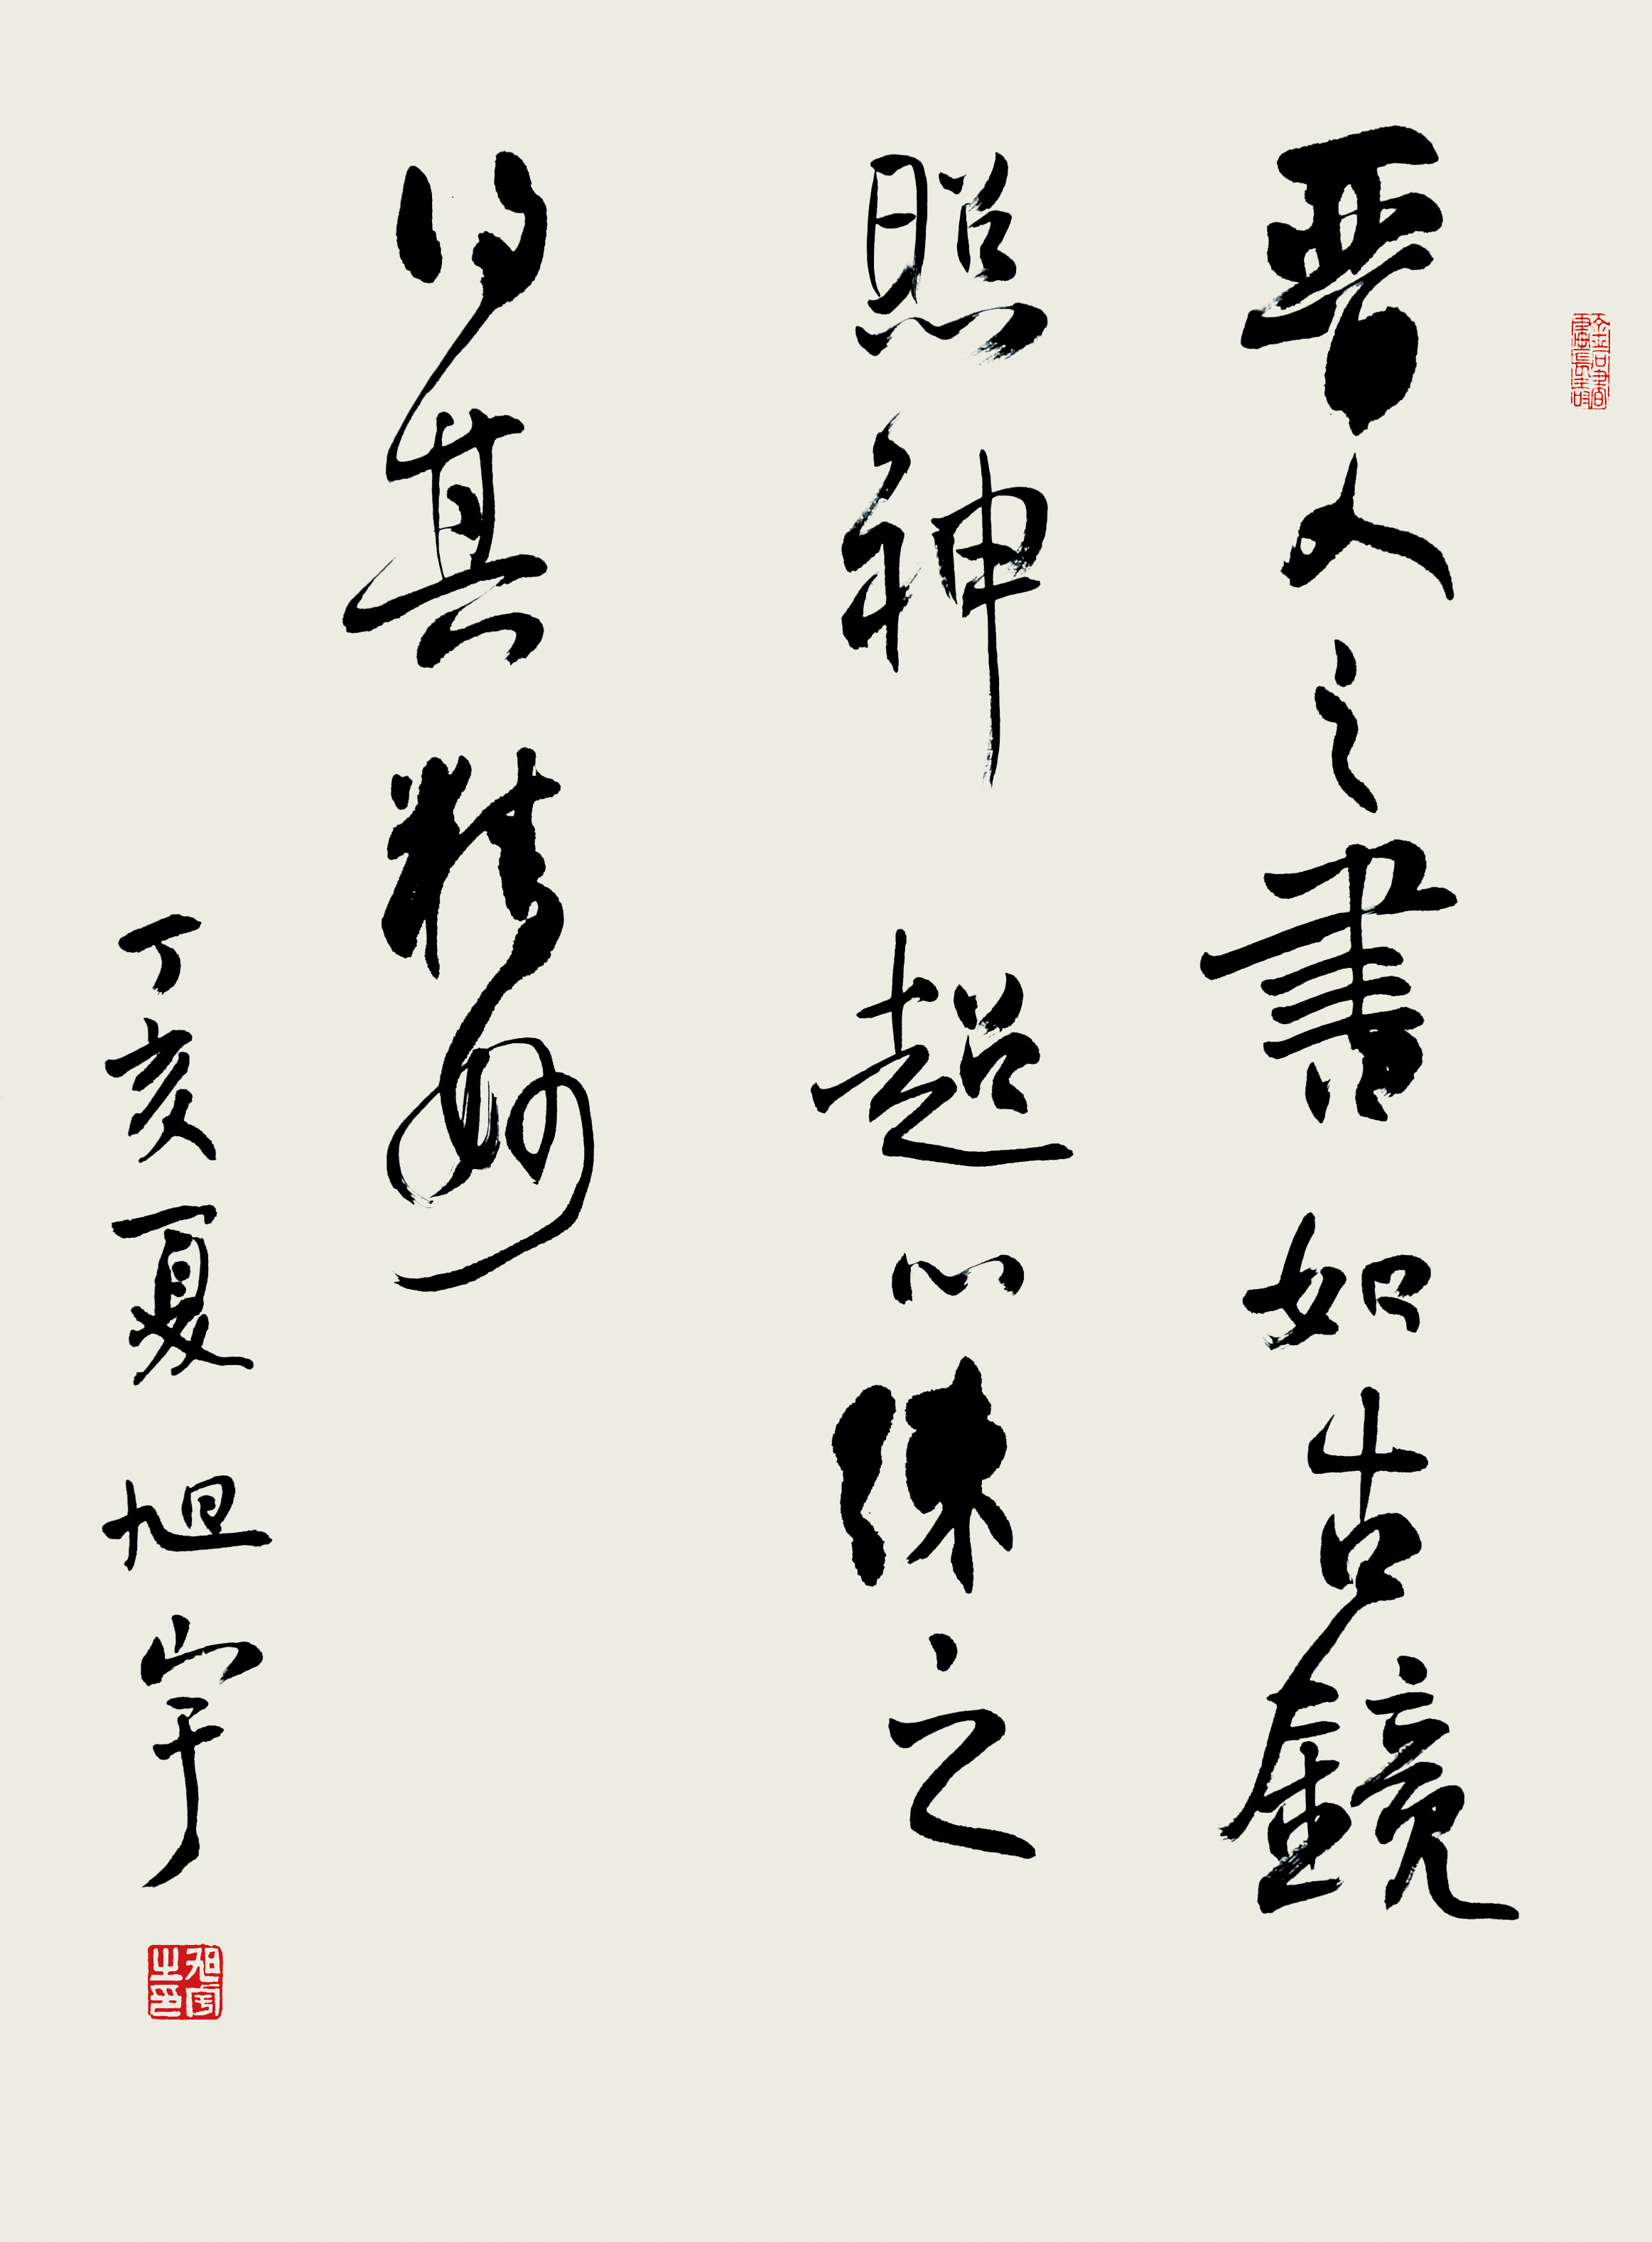 晋人之書如古鏡
照神超心練之
得其精妙
丁亥夏旭宇
旭宇之印